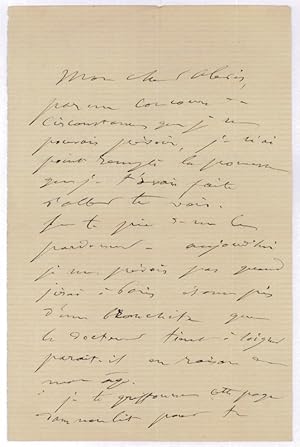 Mon cher Alexis,
par un concours de
circonstances que je ne
pouvais prévoir, je n'ai
point rempli la promesse
que je t'avais faite
d'aller te voir.
Je te prie de me le
pardonner - aujourd'hui
je ne prévois pas quand
j'irai à Paris étant pris
d'une bronchite que
le docteur tient à soigner
paraît-il en raison de
mon âge.
je te griffonne cette page
dans mon lit pour te